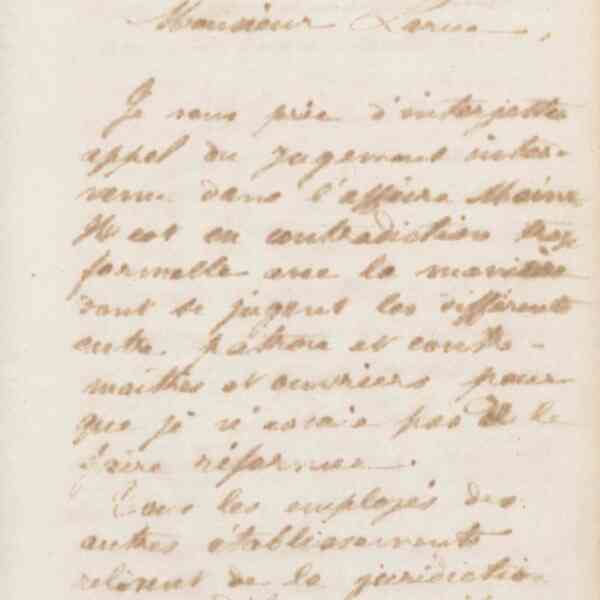 Monsieur Larue,
Je vous prie d'interjetter
appel du jugement inter-
venu dans l'affaire Moine
Il est en contradiction trop
formelle avec la manière
dont se jugent les différents
entre patron et contre-
maîtres et ouvriers pour
que je n'essaie pas de le
faire réformer.
Tous les employés des
autres établissements
relèvent de la juridiction